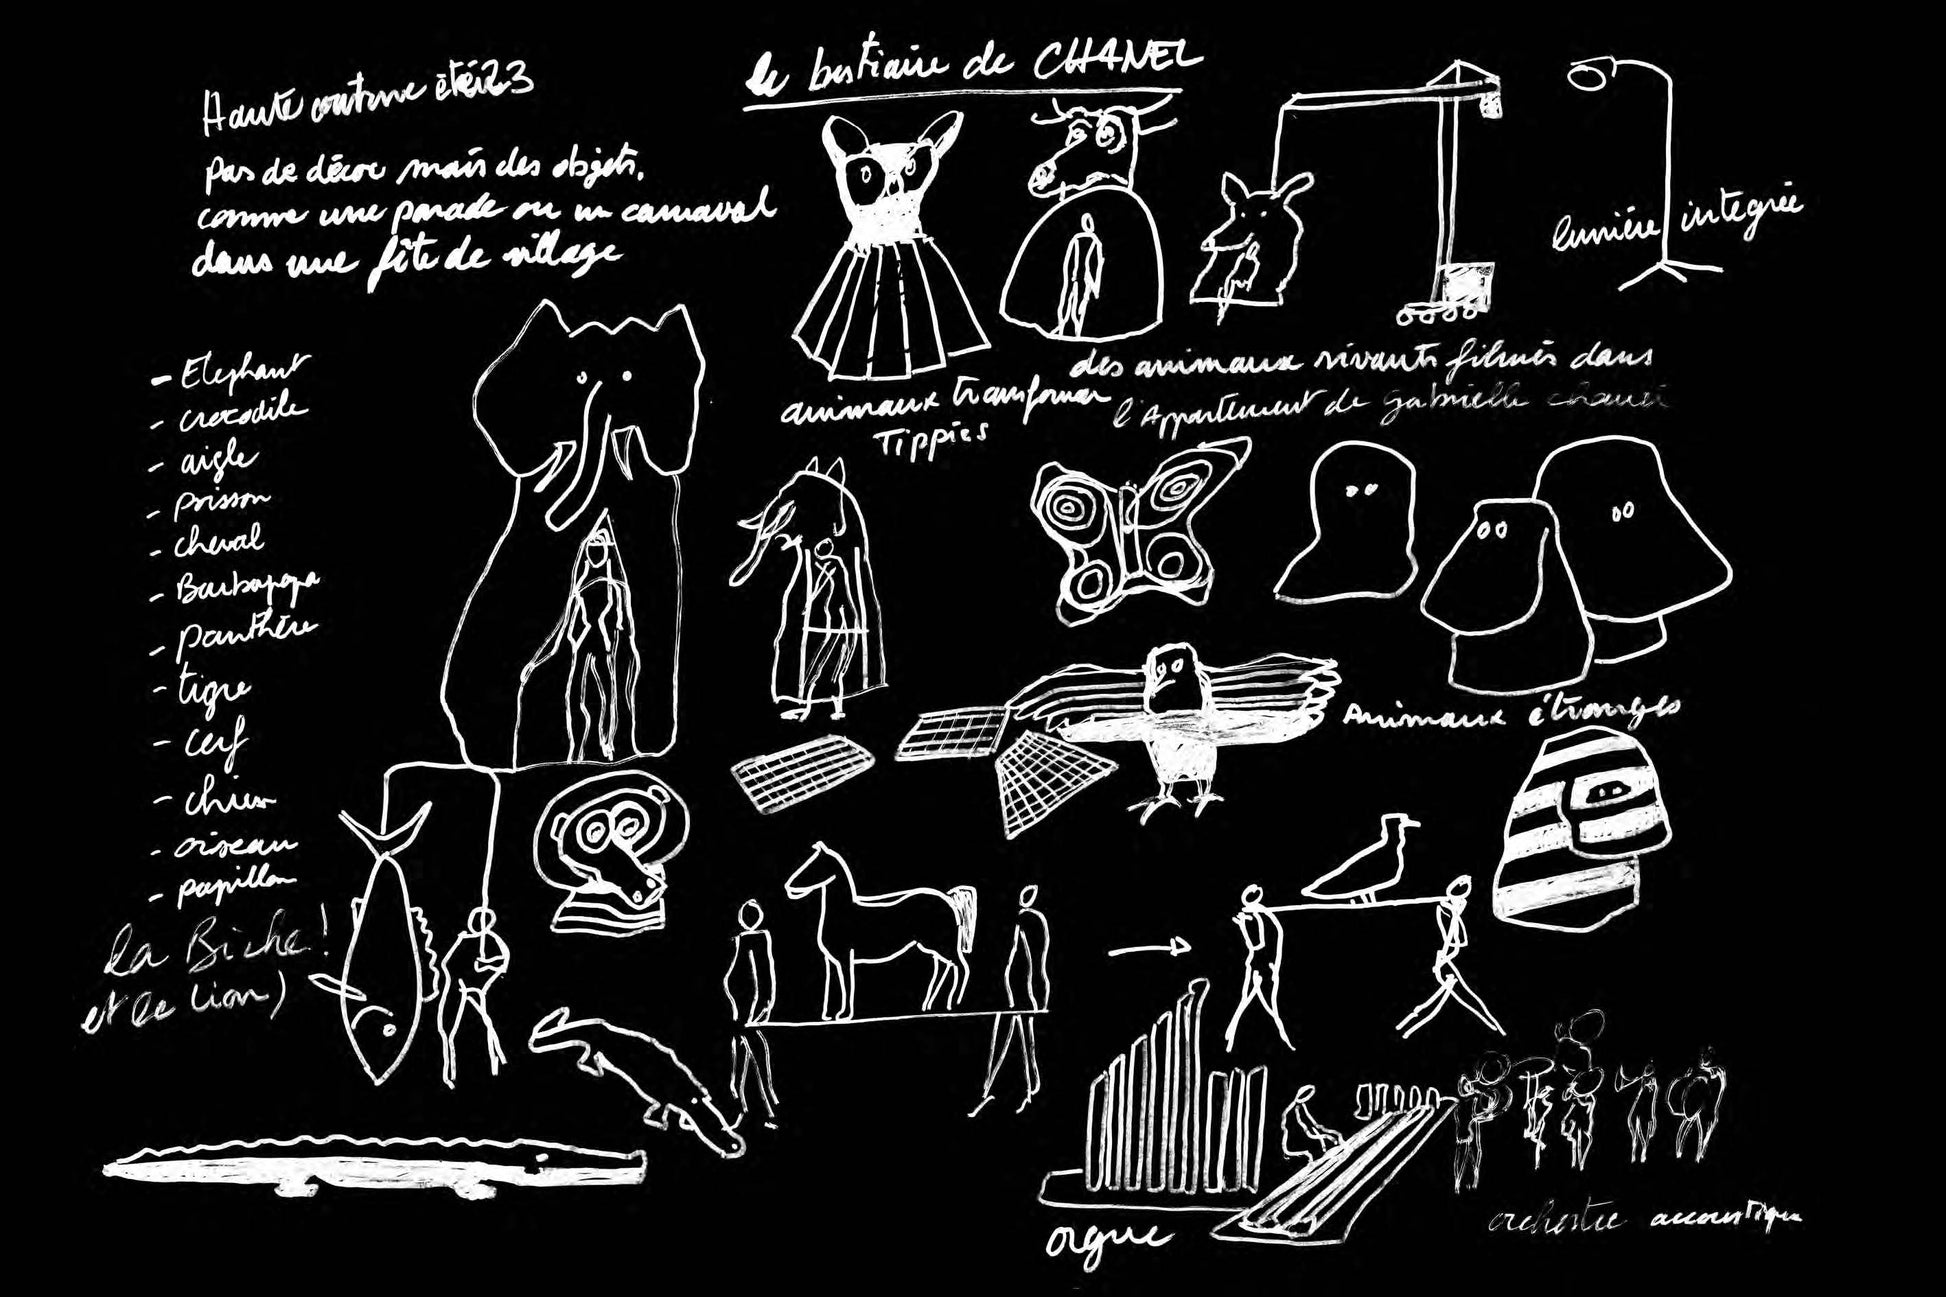 Haute couture été 23
le bestiaire de CHANEL
pas de décor mais des objets,
comme une parade ou un carnaval
dans une fête de village
lumière intégrée
- Elephant
- crocodile
- aigle
- poisson
- cheval
- Barbapapa
- panthère
- tigre
- cerf
- chien
- oiseau
- papillon
la Biche !
et le lion)
animaux transformer
Tippies
des animaux vivants filmés dans
l'Appartement de gabrielle chanel
Animaux étranges
orgue
orchestre accoustique